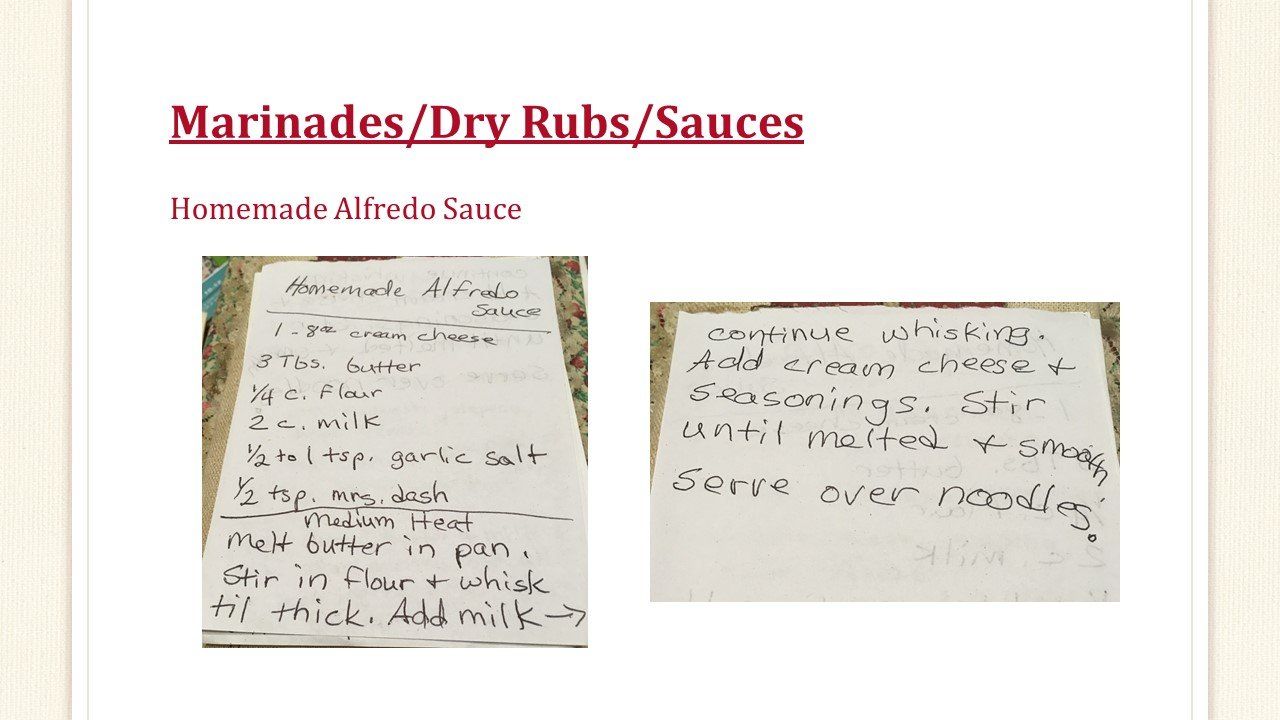 Marinades/Dry Rubs/Sauces
Homemade Alfredo Sauce
Homemade Alfredo
Sauce
1 - 8oz cream cheese
3 Tbs. butter
1/4 c. Flour
2 c. milk
1/2 to 1 tsp. garlic salt
1/2 tsp. mrs. dash
medium Heat
Melt butter in pan.
Stir in flour + whisk
til thick. Add milk →
continue whisking.
Add cream cheese +
seasonings. Stir
until melted + smooth.
Serve over noodles.